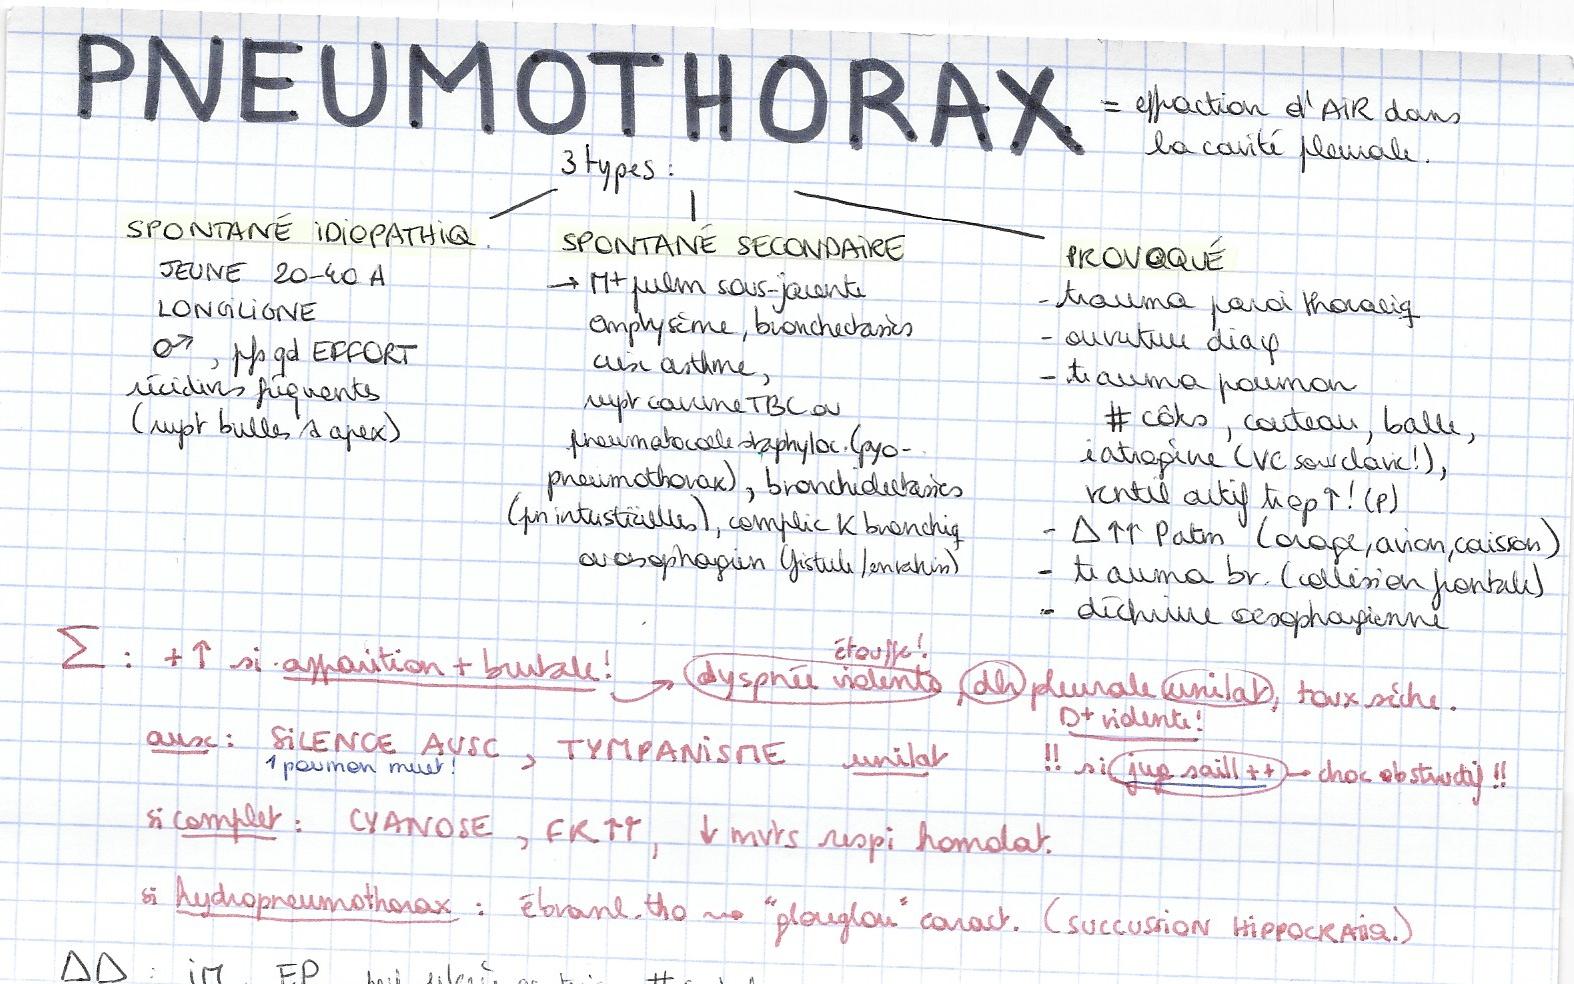 PNEUMOTHORAX
= effraction d'AIR dans
la cavité pleurale.
3 types :
SPONTANÉ IDIOPATHIQ.
JEUNE 20-40 A
LONGILIGNE
♂, pfs gd EFFORT
récidives fréquentes
(rupt bulles apex)
SPONTANÉ SECONDAIRE
→ M+ pulm sous-jacente
emphysème, bronchectasies
crise asthme,
rupt caverne TBC ou
pneumatocoele staphyloc. (pyo-
pneumothorax), bronchiolectasies
(pn interstitielles), complic K bronchiq
ou oesophagien (fistule/envahis)
PROVOQUÉ
- trauma paroi thoraciq
- ouverture diaφ
- trauma poumon
# côtes, couteau, balle,
iatrogène (VC sousclav!),
ventil artif trop ↑! (P)
- Δ↑↑ Patm (orage, avion, caisson)
- trauma br. (collision frontale)
- déchirure oesophagienne
Σ : +↑ si apparition + brutale! → dyspnée violente, dlr pleurale unilat, toux sèche.
étouffe!
D+ violente!
ausc : SILENCE AUSC, TYMPANISME unilat
1 poumon muet!
!! si jug saill ++ → choc obstructif !!
si complet : CYANOSE, FR↑↑, ↓ mvts respi homolat.
si hydropneumothorax : ébranl. tho → "glouglou" caract. (SUCCUSSION HIPPOCRATIQ.)
ΔΔ : IM, EP